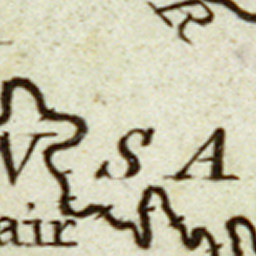 R
V S A
air